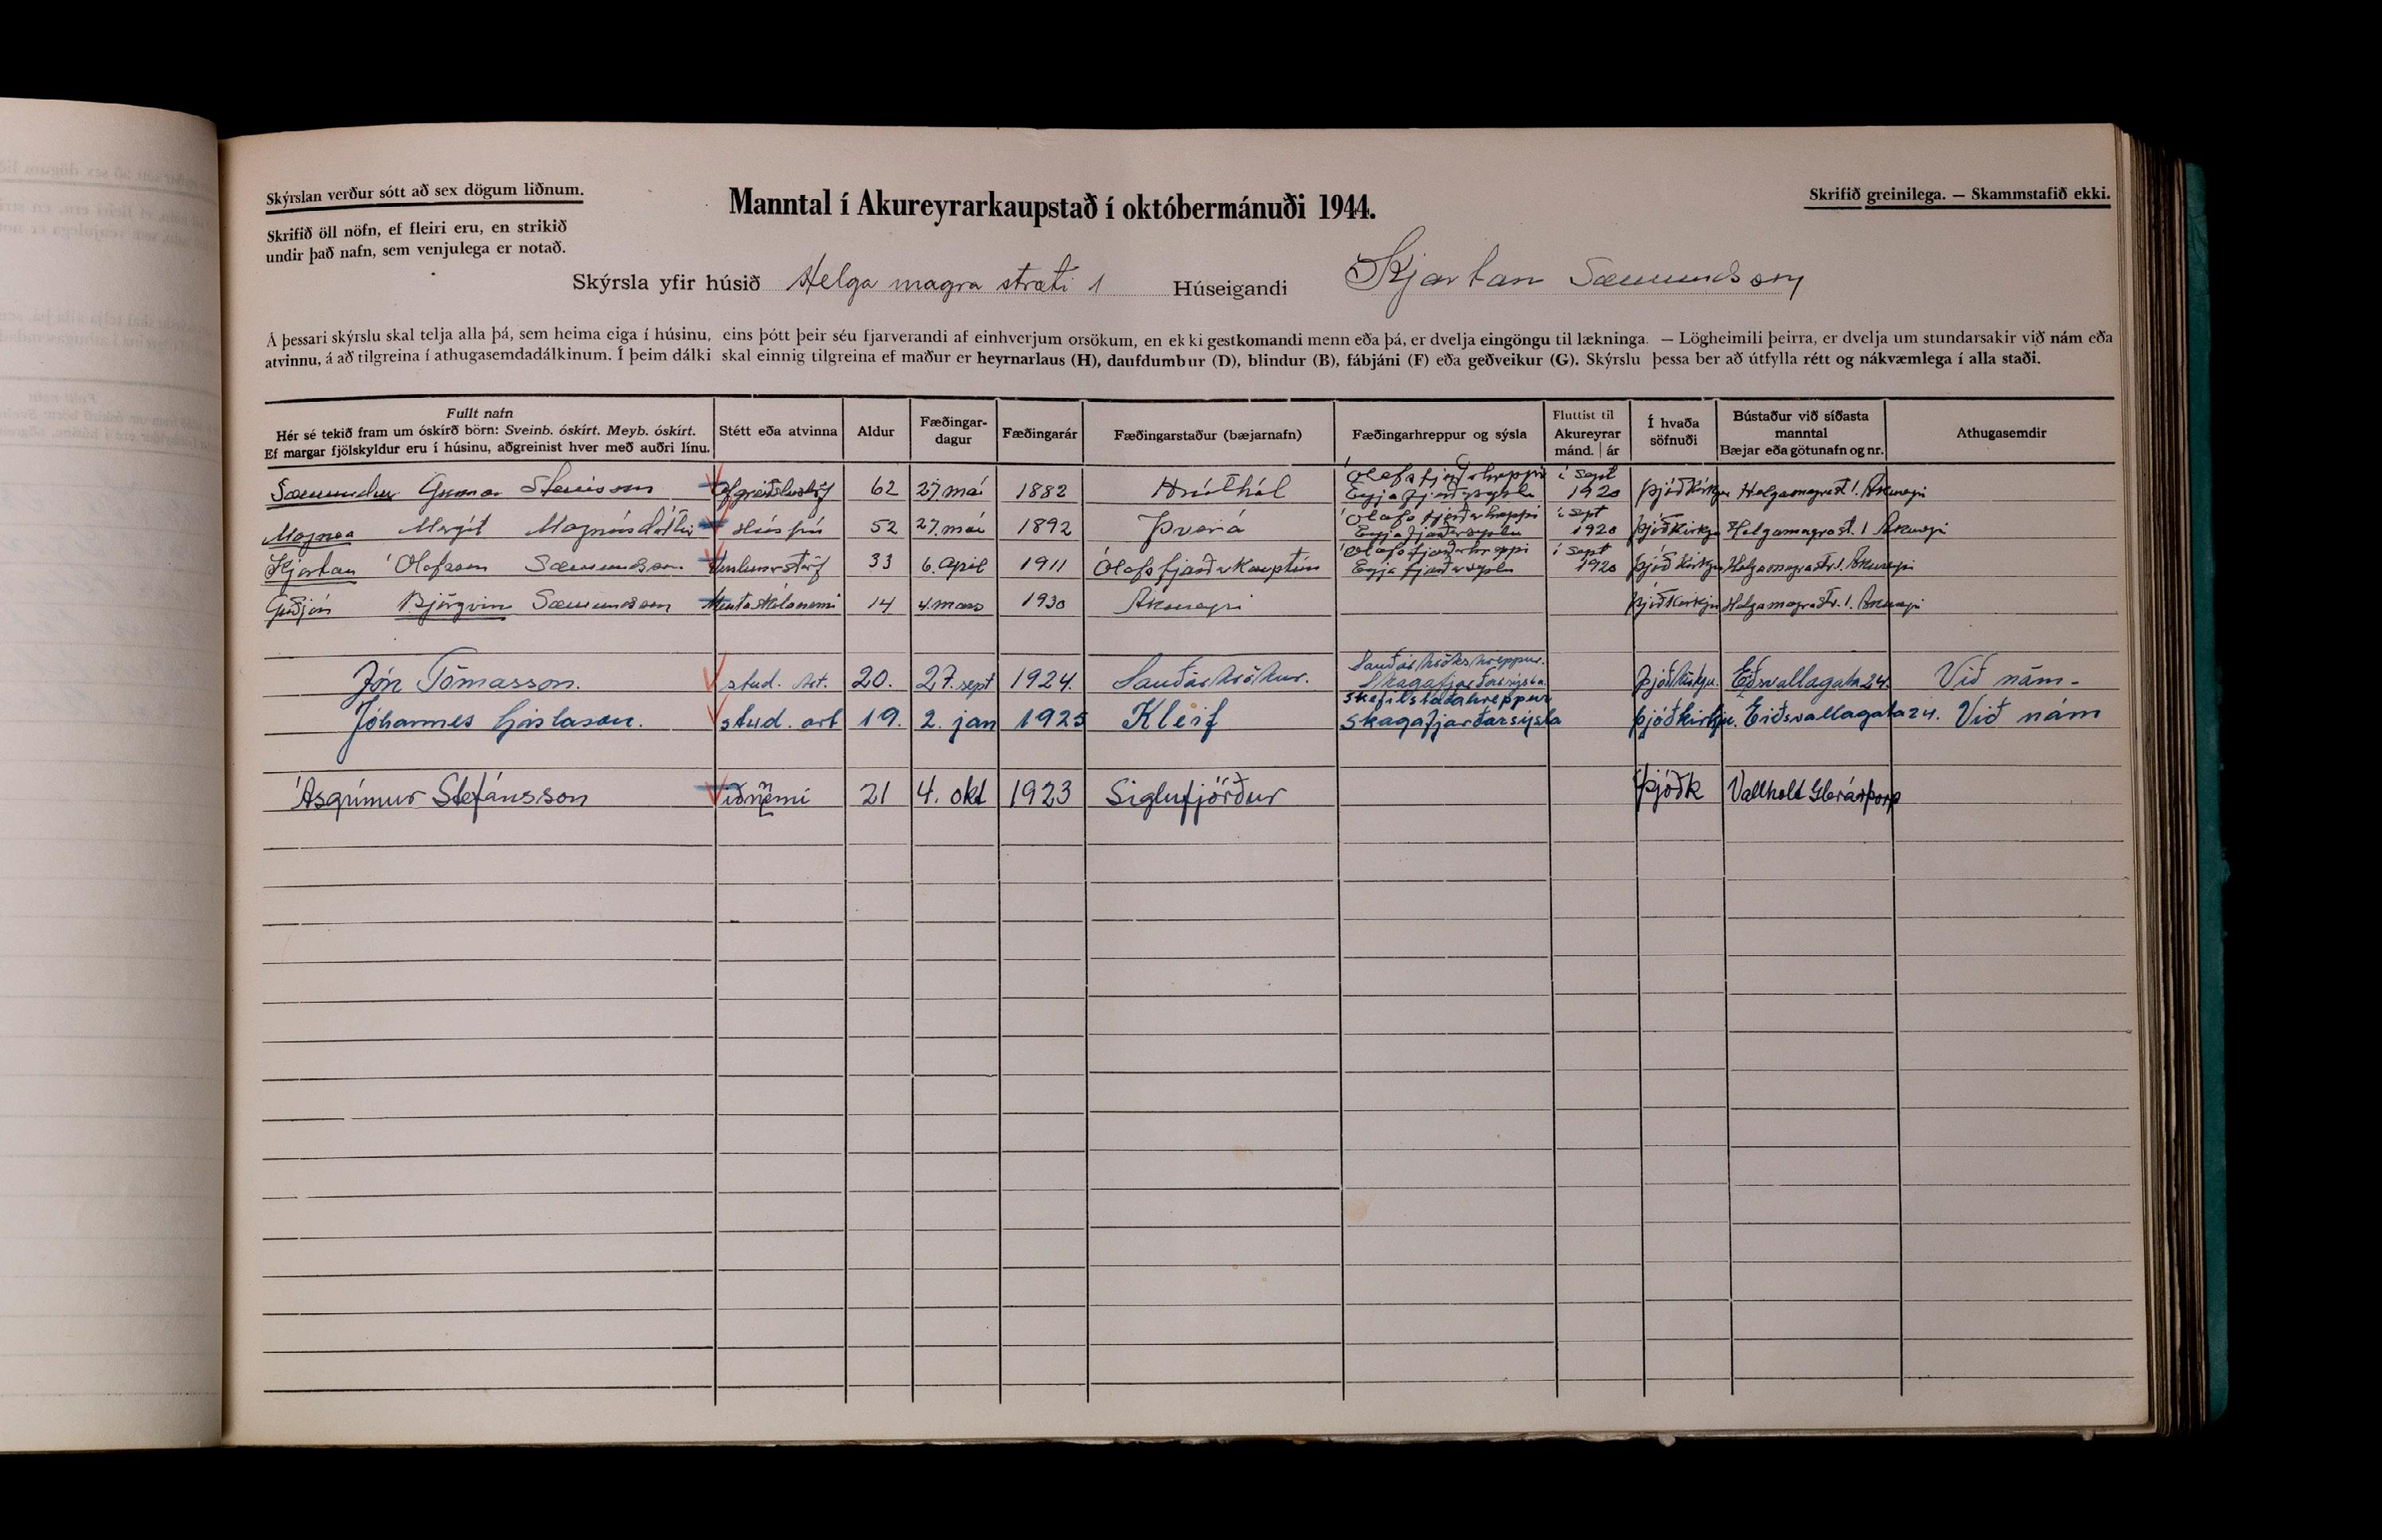 Skýrslan verður sótt að sex dögum liðnum.
Skrifið öll nöfn, ef fleiri eru, en strikið
undir það nafn, sem venjulega er notað.
Manntal í Akureyrarkaupstað í októbermánuði 1944.
Skrifið greinilega. — Skammstafið ekki.
Skýrsla yfir húsið Helga magra stræti 1 Húseigandi Kjartan Sæmundsson
Á þessari skýrslu skal telja alla þá, sem heima eiga í húsinu, eins þótt þeir séu fjarverandi af einhverjum orsökum, en ekki gestkomandi menn eða þá, er dvelja eingöngu til lækninga. — Lögheimili þeirra, er dvelja um stundarsakir við nám eða
atvinnu, á að tilgreina í athugasemdadálkinum. Í þeim dálki skal einnig tilgreina ef maður er heyrnarlaus (H), daufdumbur (D), blindur (B), fábjáni (F) eða geðveikur (G). Skýrslu þessa ber að útfylla rétt og nákvæmlega í alla staði.
Fullt nafn
Hér sé tekið fram um óskírð börn: Sveinb. óskírt. Meyb. óskírt.
Ef margar fjölskyldur eru í húsinu, aðgreinist hver með auðri línu.
Stétt eða atvinna
Aldur
Fæðingar-
dagur
Fæðingarár
Fæðingarstaður (bæjarnafn)
Fæðingarhreppur og sýsla
Fluttist til
Akureyrar
mánd. | ár
Í hvaða
söfnuði
Bústaður við síðasta
manntal
Bæjar eða götunafn og nr.
Athugasemdir
Ólafsfjarðarhreppi í sept
Sæmundur Gunnar Steinsson 62 27 maí 1882 Eyjafjarðarsýslu 1920 Þjóðkirkju Helgamagrast. 1. Akureyri
Ólafsfjarðarhreppi í sept
Magnea Margit Magnúsdóttir Húsfrú 52 27. maí 1892 Þverá Eyjafjarðarsýslu 1920 Þjóðkirkju Helgamagrast. 1 Akureyri
Ólafsfjarðarhreppi í sept
Kjartan Ólafsson Sæmundsson 33 6. apríl 1911 Ólafsfjarðarkauptún Eyjafjarðarsýslu 1920 Þjóðkirkju Helgamagrastr. 1. Akureyri
Guðjón Björgvin Sæmundsson Mentaskólanemi 14 4. mars 1930 Akureyri Þjóðkirkju Helgamagrastr. 1. Akureyri
Sauðárkrókshreppur.
Jón Tómasson. stud. art. 20. 27. sept 1924. Sauðárkrókur. Skagafjarðarsýsla Þjóðkirkju. Eiðsvallagata 24. Við nám-
Skefilstaðahreppur
Jóhannes Gíslason. stud. art 19. 2. jan 1925 Kleif Skagafjarðarsýsla Þjóðkirkju. Eiðsvallagata 24. Við nám
Ásgrímur Stefánsson iðnnemi 21 4. okt 1923 Siglufjörður Þjóðk Vallholt Glerárþorp